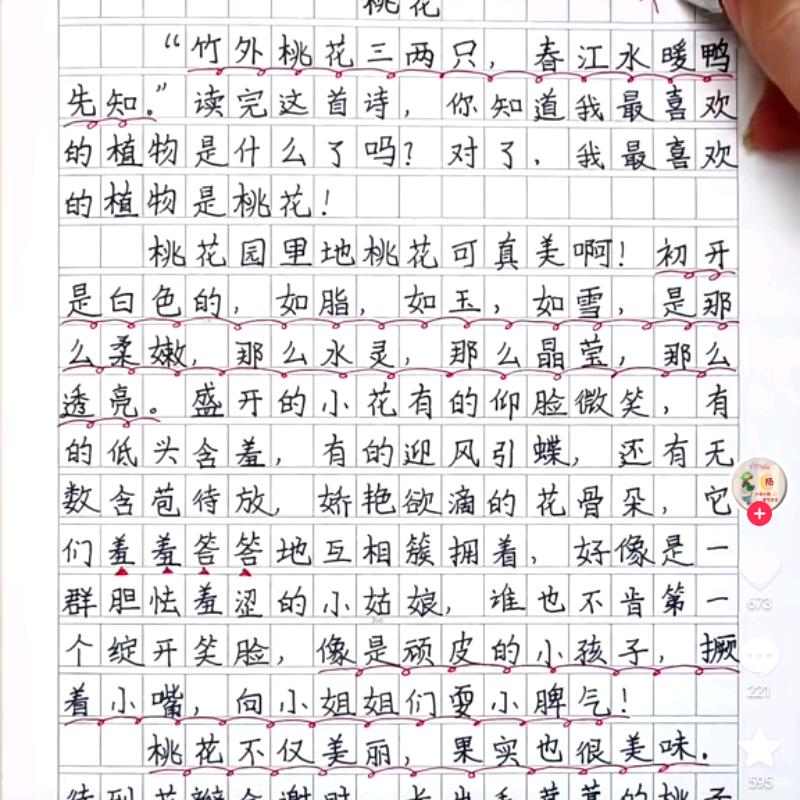 桃花
“竹外桃花三两只，春江水暖鸭
先知。”读完这首诗，你知道我最喜欢
的植物是什么了吗？对了，我最喜欢
的植物是桃花！
桃花园里地桃花可真美啊！初开
是白色的，如脂，如玉，如雪，是那
么柔嫩，那么水灵，那么晶莹，那么
透亮。盛开的小花有的仰脸微笑，有
的低头含羞，有的迎风引蝶，还有无
数含苞待放，娇艳欲滴的花骨朵，它
们羞羞答答地互相簇拥着，好像是一
群胆怯羞涩的小姑娘，谁也不肯第一
个绽开笑脸，像是顽皮的小孩子，撅
着小嘴，向小姐姐们耍小脾气！
桃花不仅美丽，果实也很美味.
杨
673
221
595